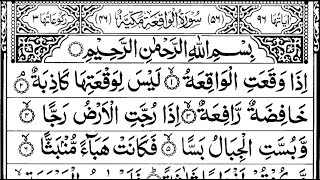 اٰیاتها ٩٦ (٥٦) سُوْرَةُ الْوَاقِعَةِ مَكِّيَّةٌ (٤٦) رکوعاتها ٣
بِسْمِ اللّٰهِ الرَّحْمٰنِ الرَّحِيْمِ
اِذَا وَقَعَتِ الْوَاقِعَةُ ۙ١ لَيْسَ لِوَقْعَتِهَا كَاذِبَةٌ ۘ٢
خَافِضَةٌ رَّافِعَةٌ ۙ٣ اِذَا رُجَّتِ الْاَرْضُ رَجًّا ۙ٤
وَّبُسَّتِ الْجِبَالُ بَسًّا ۙ٥ فَكَانَتْ هَبَآءً مُّنْۢبَثًّا ۙ٦